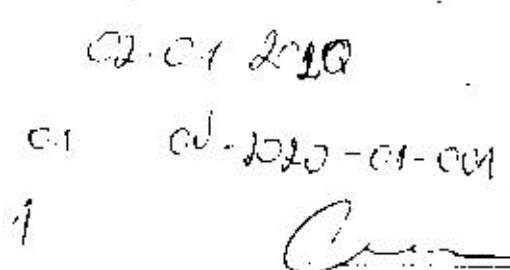 02.01 2020
01 01-2020-01-001
1